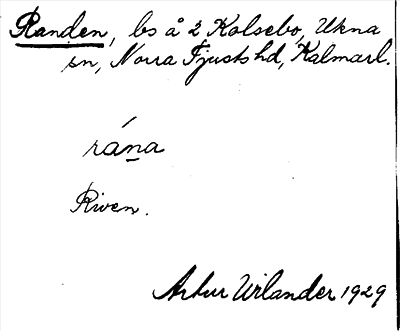 Randen, bs å 2 Kolsebo, Ukna
sn, Norra Tjusts hd, Kalmarl.
rána
Riven.
Artur Wilander 1929